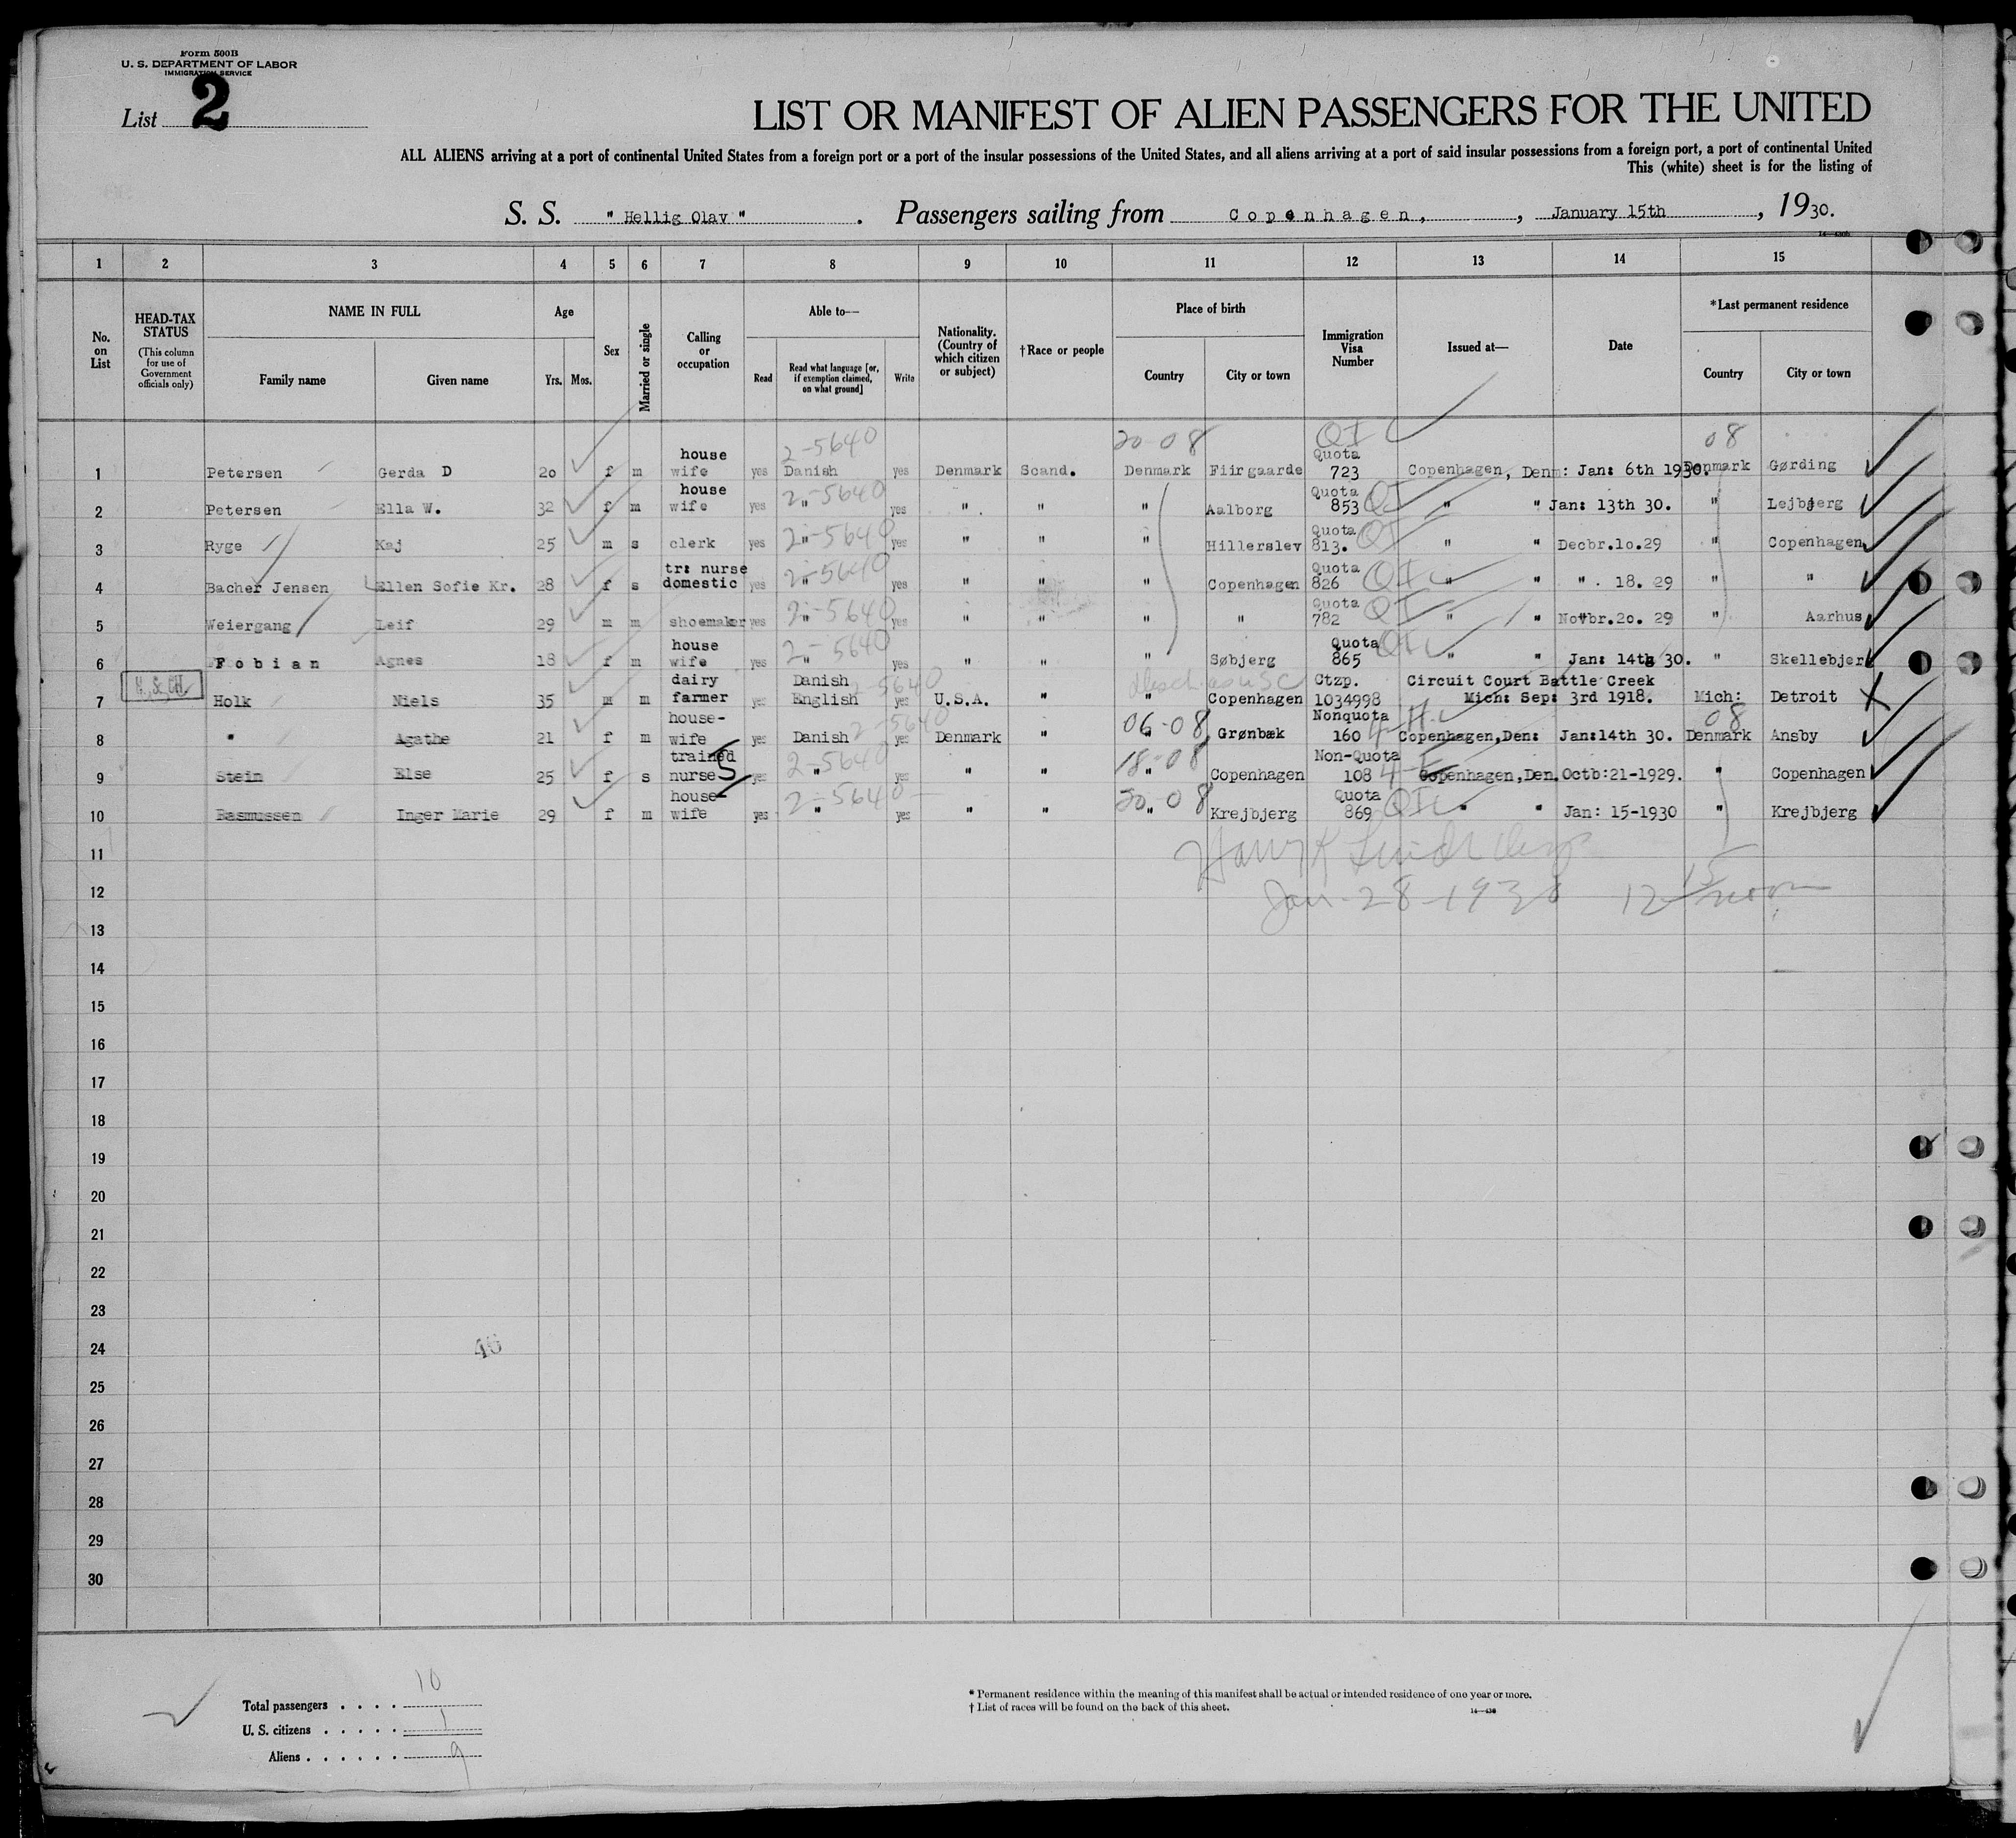 Form 500B
U. S. DEPARTMENT OF LABOR
IMMIGRATION SERVICE
List 2
LIST OR MANIFEST OF ALIEN PASSENGERS FOR THE UNITED
ALL ALIENS arriving at a port of continental United States from a foreign port or a port of the insular possessions of the United States, and all aliens arriving at a port of said insular possessions from a foreign port, a port of continental United
This (white) sheet is for the listing of
S. S. " Hellig Olav " . Passengers sailing from Copenhagen, , January 15th , 1930.
1 2 3 4 5 6 7 8 9 10 11 12 13 14 15
No. on List
HEAD-TAX STATUS (This column for use of Government officials only)
NAME IN FULL Family name Given name
Age Yrs. Mos.
Sex
Married or single
Calling or occupation
Able to— Read Read what language [or, if exemption claimed, on what ground] Write
Nationality. (Country of which citizen or subject)
†Race or people
Place of birth Country City or town
Immigration Visa Number
Issued at—
Date
*Last permanent residence Country City or town
20-08 QI 08
1 Petersen Gerda D 20 f m house wife yes 2-5640 Danish yes Denmark Scand. Denmark Fiirgaarde Quota 723 Copenhagen, Denm: Jan: 6th 1930. Denmark Gørding
2 Petersen Ella W. 32 f m house wife yes 2-5640 " yes " " " Aalborg Quota 853 QI " " Jan: 13th 30. " Lejbjerg
3 Ryge Kaj 25 m s clerk yes 2-5640 " yes " " " Hillerslev Quota 813. QI " " Decbr.10.29 " Copenhagen
4 Bacher Jensen Ellen Sofie Kr. 28 f s tr: nurse domestic yes 2-5640 " yes " " " Copenhagen Quota 826 QI " " " . 18. 29 " "
5 Weiergang Leif 29 m m shoemaker yes 2-5640 " yes " " " " Quota 782 QI " " Novbr.20. 29 " Aarhus
6 Fobian Agnes 18 f m house wife yes 2-5640 " yes " " " Søbjerg Quota 865 QI " " Jan: 14th 30. " Skellebjer
7 Holk Niels 35 m m dairy farmer yes Danish English 2-5640 yes U.S.A. " " Copenhagen Ctzp. 1034998 Circuit Court Battle Creek Mich: Sep: 3rd 1918. Mich: Detroit X
8 " Agathe 21 f m house-wife yes Danish 2-5640 yes Denmark " 06-08 " Grønbæk Nonquota 160 Copenhagen,Den: Jan:14th 30. 08 Denmark Ansby
9 Stein Else 25 f s trained nurse 5 yes 2-5640 " yes " " 18-08 " Copenhagen Non-Quota 108 Copenhagen,Den. Octb:21-1929. " Copenhagen
10 Rasmussen Inger Marie 29 f m house-wife yes 2-5640 " yes " " 20-08 " Krejbjerg Quota 869 QI " " Jan: 15-1930 " Krejbjerg
11
12 Jan-28-1930 12 noon
13
14
15
16
17
18
19
20
21
22
23
24 46
25
26
27
28
29
30
Total passengers . . . . 10
U. S. citizens . . . . . 1
Aliens . . . . . . 9
* Permanent residence within the meaning of this manifest shall be actual or intended residence of one year or more.
† List of races will be found on the back of this sheet.